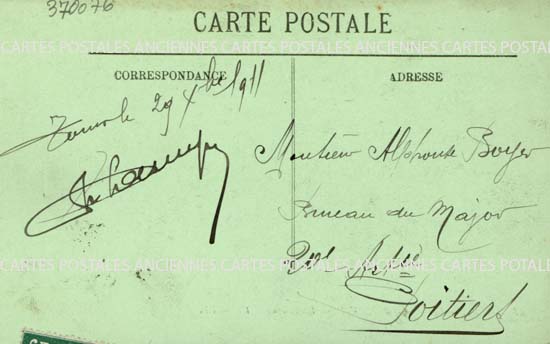 370076
CARTE POSTALE
CARTES POSTALES ANCIENNES CARTES POSTALES ANCIENNES CARTES POSTALES
CORRESPONDANCE
ADRESSE
le 29 Xbre 1911
Monsieur Alphonse Boyer
Bureau du Major
Poitiers
CARTES POTALES ANCIENNES CARTES POSTALES ANCIENNES CARTES POTALES